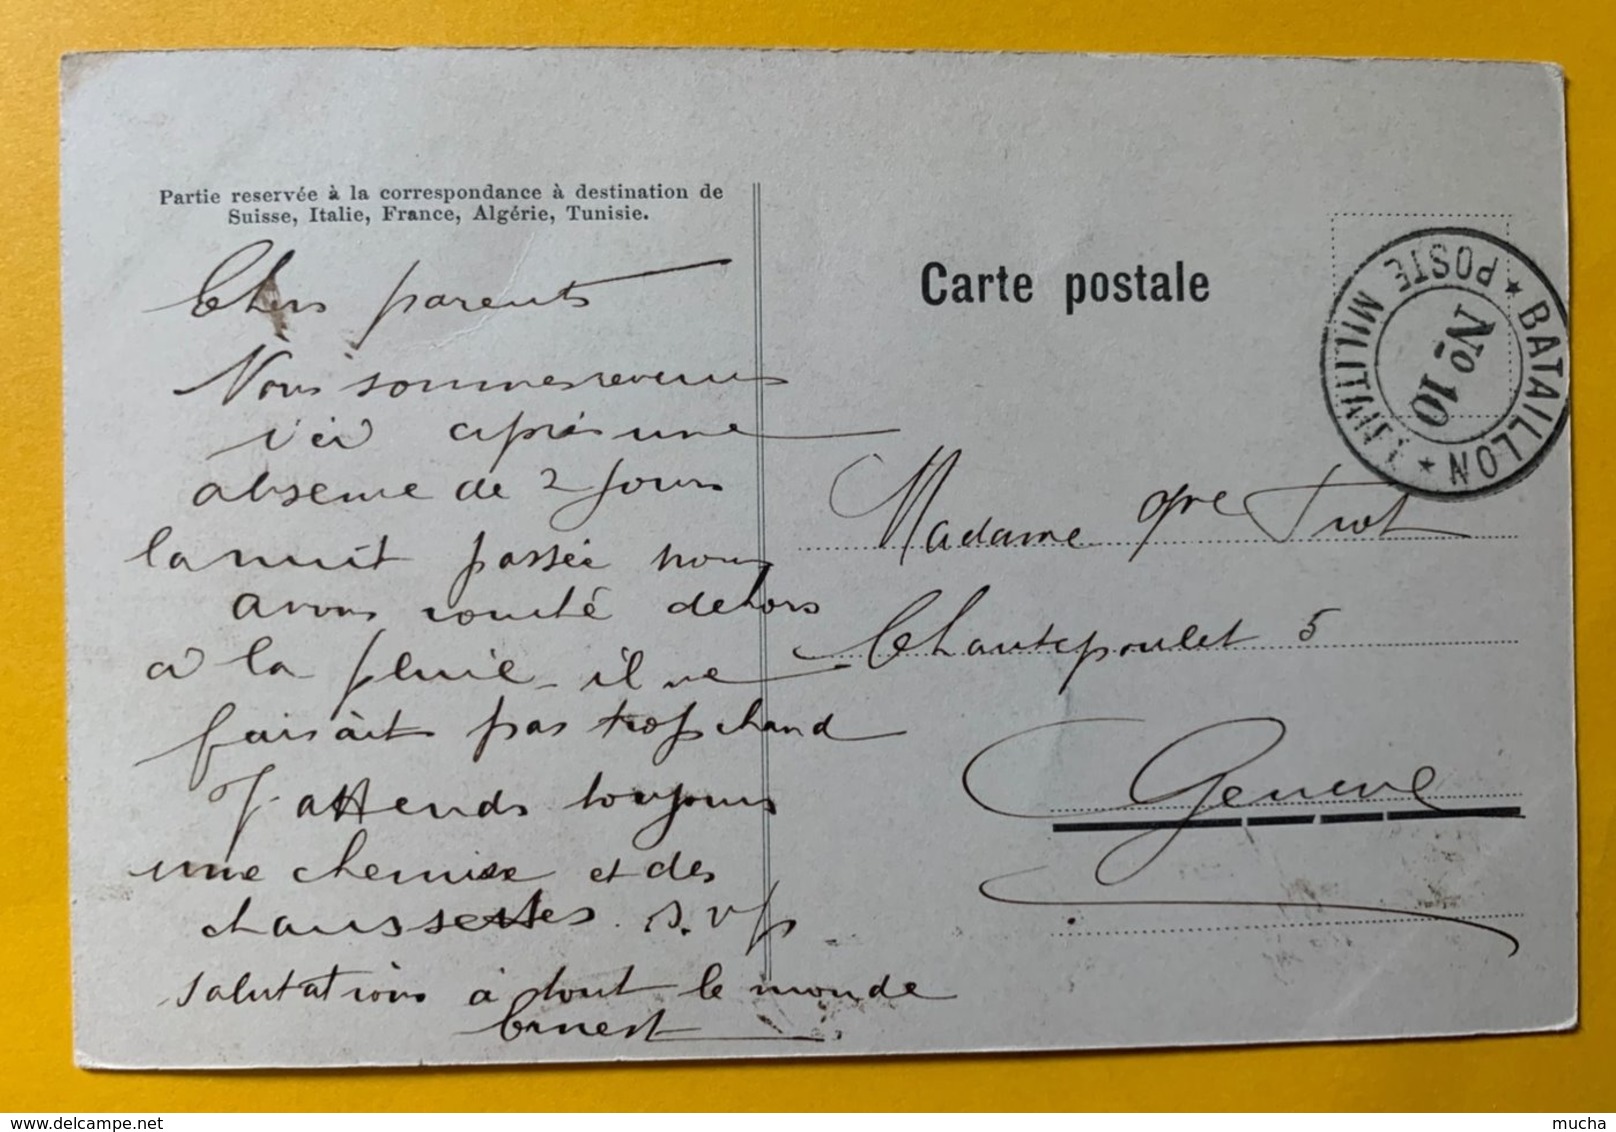 Partie reservée à la correspondance à destination de
Suisse, Italie, France, Algérie, Tunisie.
Chers parents
Nous sommes revenus
ici après une
absence de 2 jours
la nuit passée nous
avons couché dehors
à la pluie il ne
faisait pas trop chaud
J'attends toujours
une chemise et des
chaussettes. s.v.p
salutations à tout le monde
Ernest
Carte postale
BATAILLON
POSTE MILITAIRE
No 10
Madame
Chantepoulet 5
Genève
delcampe.net
mucha